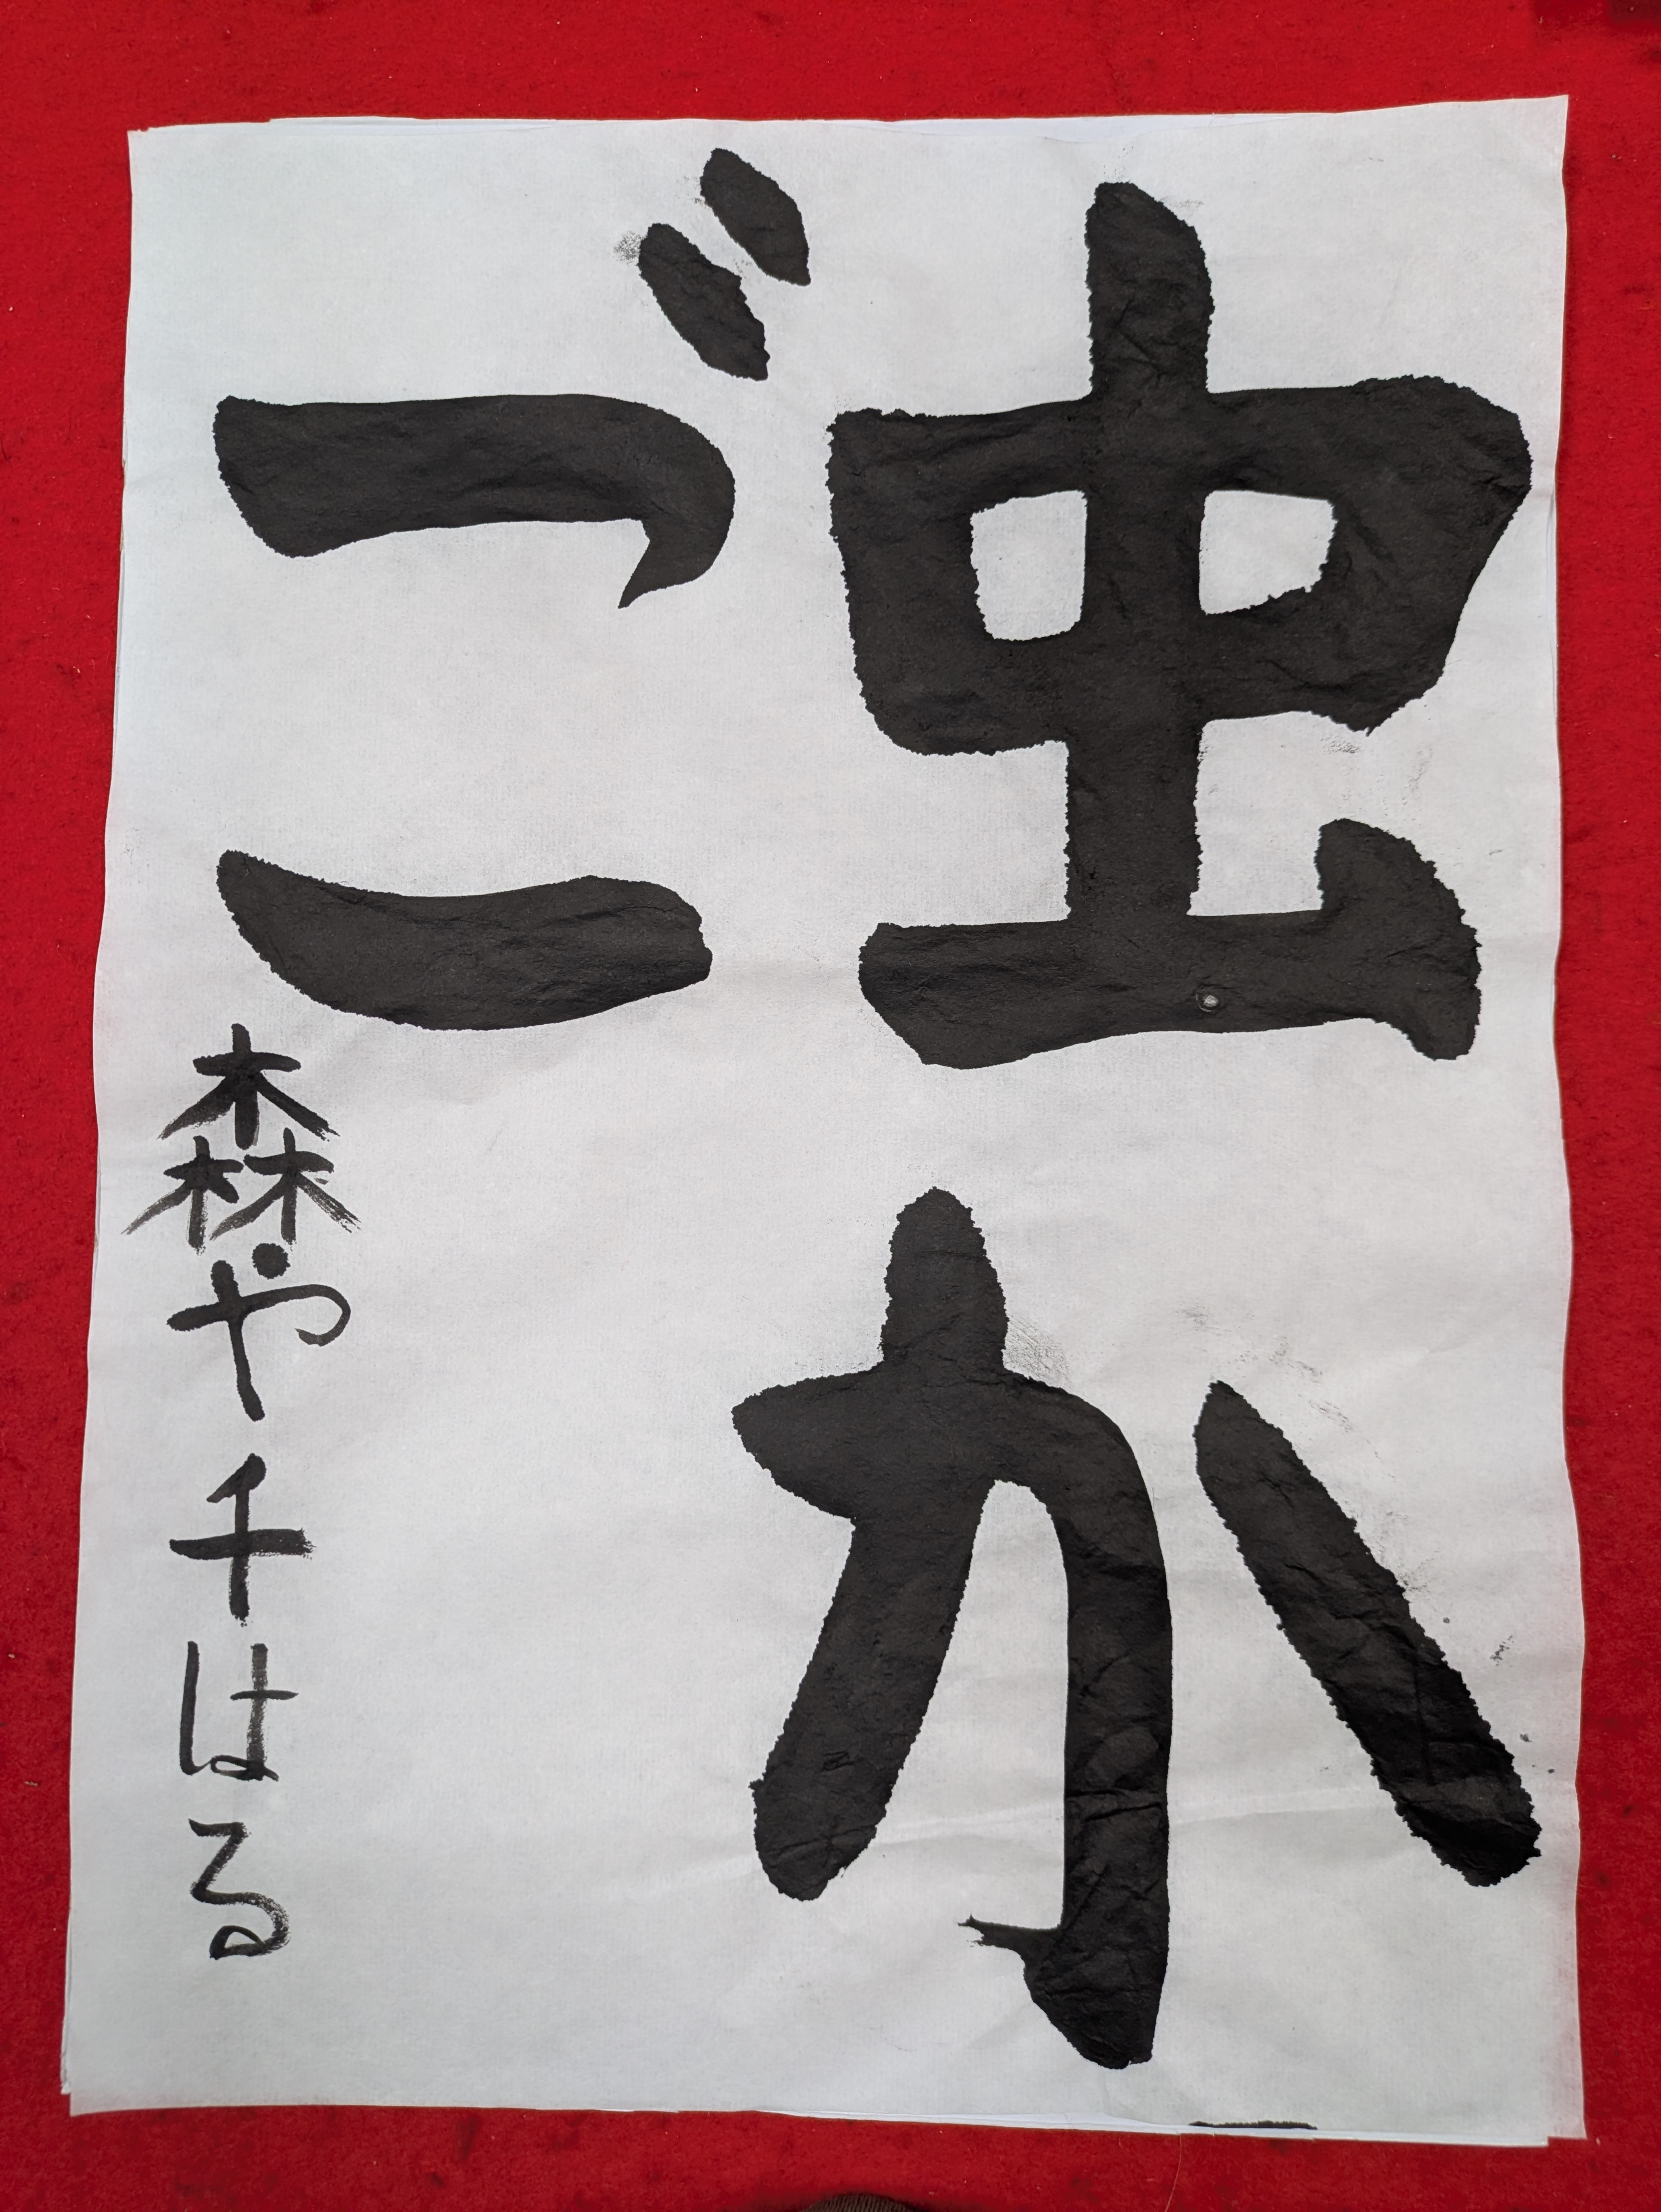 虫か
ご
森や千はる